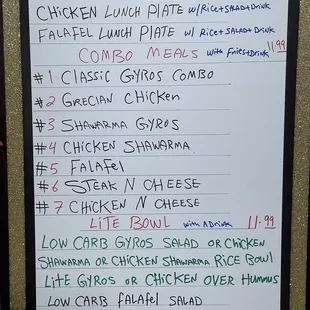 CHICKEN LUNCH PLATE w/Rice+SALAD+Drink
FALAFEL LUNCH PLATE w/ Rice+SALAD+Drink
COMBO MEALS with Fries+Drink 11.99
#1 CLASSIC GYROS COMBO
#2 GRECIAN CHICKEN
#3 SHAWARMA GYROS
#4 CHICKEN SHAWARMA
#5 FALAFEL
#6 STEAK N CHEESE
#7 CHICKEN N CHEESE
LITE BOWL with A Drink 11.99
LOW CARB GYROS SALAD OR CHICKEN
SHAWARMA OR CHICKEN SHAWARMA RICE BOWL
LITE GYROS OR CHICKEN OVER HUMMUS
LOW CARB FALAFEL SALAD